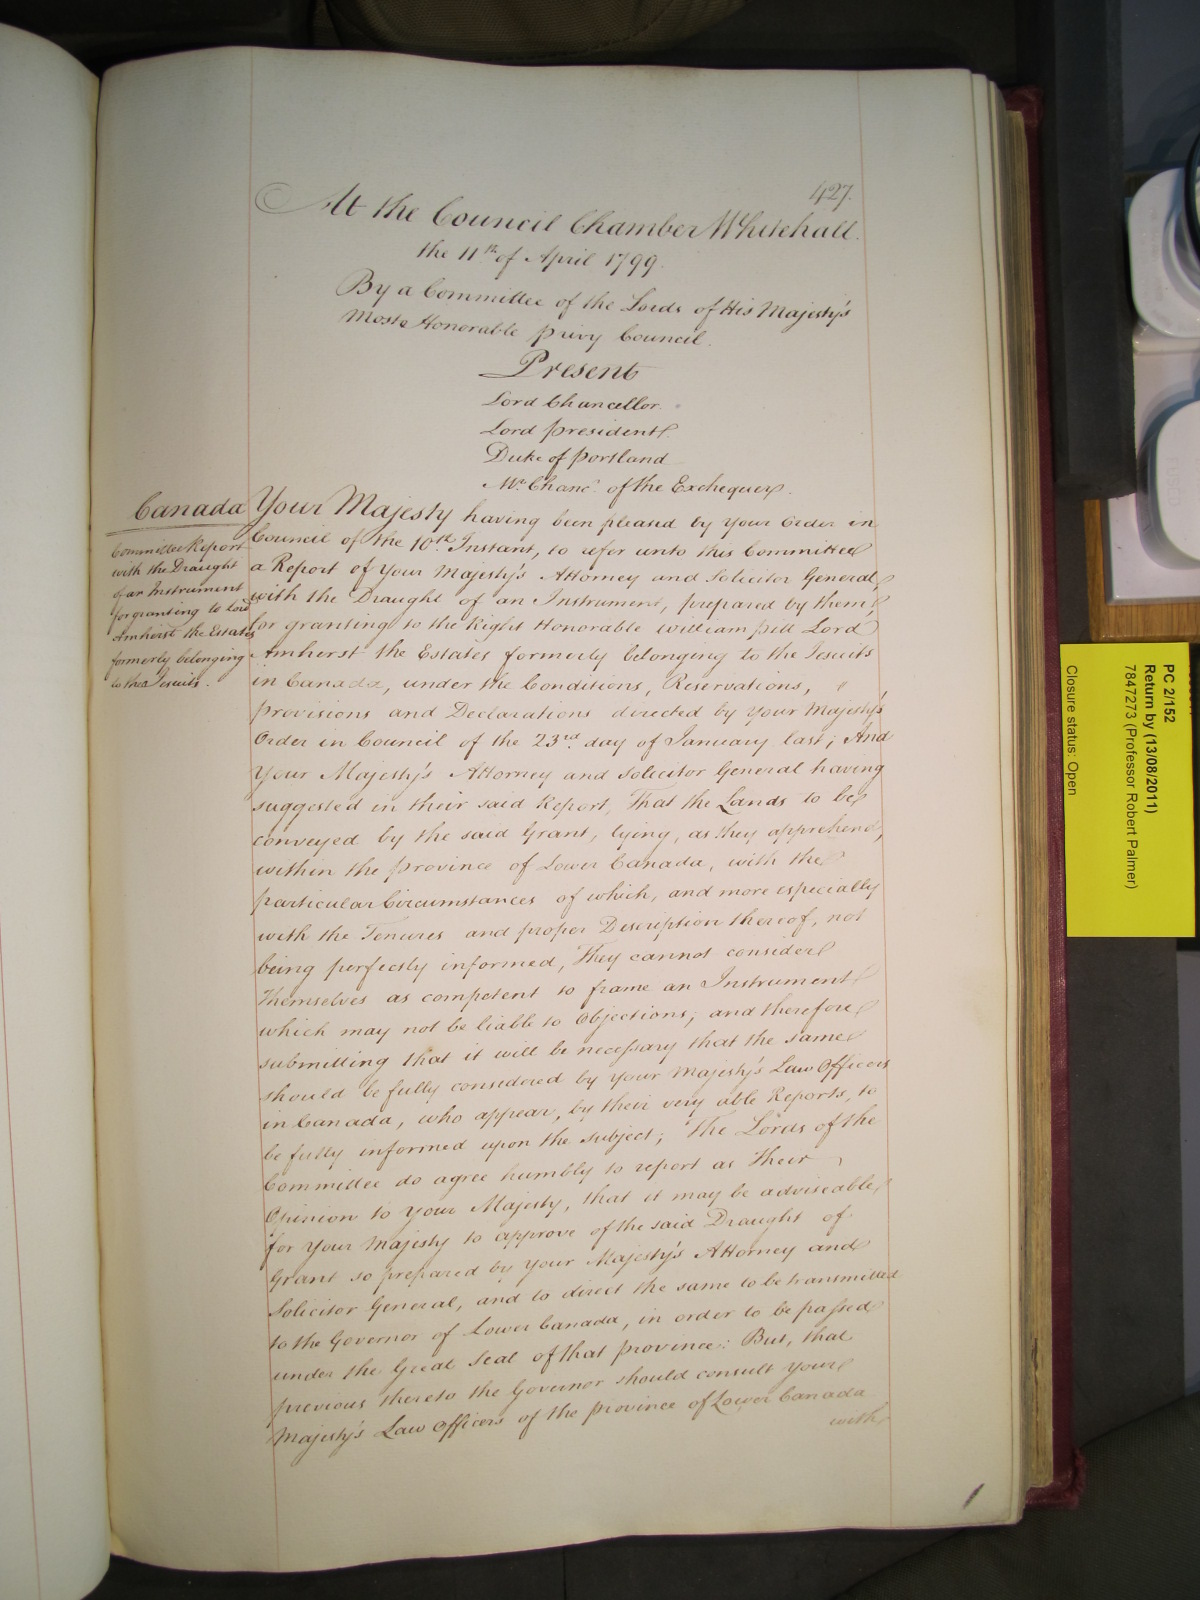 427.
At the Council Chamber Whitehall.
the 11th of April 1799.
By a Committee of the Lords of His Majesty's
Most Honorable privy Council.
Present
Lord Chancellor.
Lord president.
Duke of portland
Mr. Chanr. of the Exchequer.
Canada
Committee Report
with the Draught
of an Instrument
for granting to Lord
Amherst the Estates
formerly belonging
to the Jesuits.
Your Majesty having been pleased by Your Order in
Council of the 10th Instant, to refer unto this Committee
a Report of Your Majesty's Attorney and Solicitor General,
with the Draught of an Instrument, prepared by them,
for granting to the Right Honorable William pitt Lord
Amherst the Estates formerly belonging to the Jesuits
in Canada, under the Conditions, Reservations,
provisions and Declarations directed by Your Majesty's
Order in Council of the 23rd day of January last; And
Your Majesty's Attorney and Solicitor General having
suggested in their said Report, That the Lands to be
conveyed by the said Grant, lying, as they apprehend,
within the province of Lower Canada, with the
particular Circumstances of which, and more especially
with the Tenures and proper Description thereof, not
being perfectly informed, They cannot consider
Themselves as competent to frame an Instrument
which may not be liable to Objections; and therefore
submitting that it will be necessary that the same
should be fully considered by Your Majesty's Law Officers
in Canada, who appear, by their very able Reports, to
be fully informed upon the subject; The Lords of the
Committee do agree humbly to report as Their
Opinion to Your Majesty, that it may be adviseable,
for Your Majesty to approve of the said Draught of
Grant so prepared by Your Majesty's Attorney and
Solicitor General, and to direct the same to be transmitted
to the Governor of Lower Canada, in order to be passed
under the Great Seal of that province: But, that
previous thereto the Governor should consult Your
Majesty's Law Officers of the province of Lower Canada
with
PC 2/152
Return by (13/08/2011)
7847273 (Professor Robert Palmer)
Closure status: Open